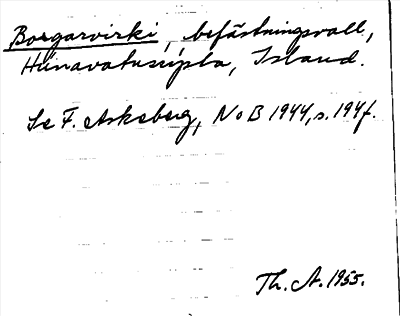 Borgarvirki, befästningsvall,
Húnavatnssýsla, Island.
Se F. Askeberg, NoB 1944, s. 194f.
Th. A. 1955.